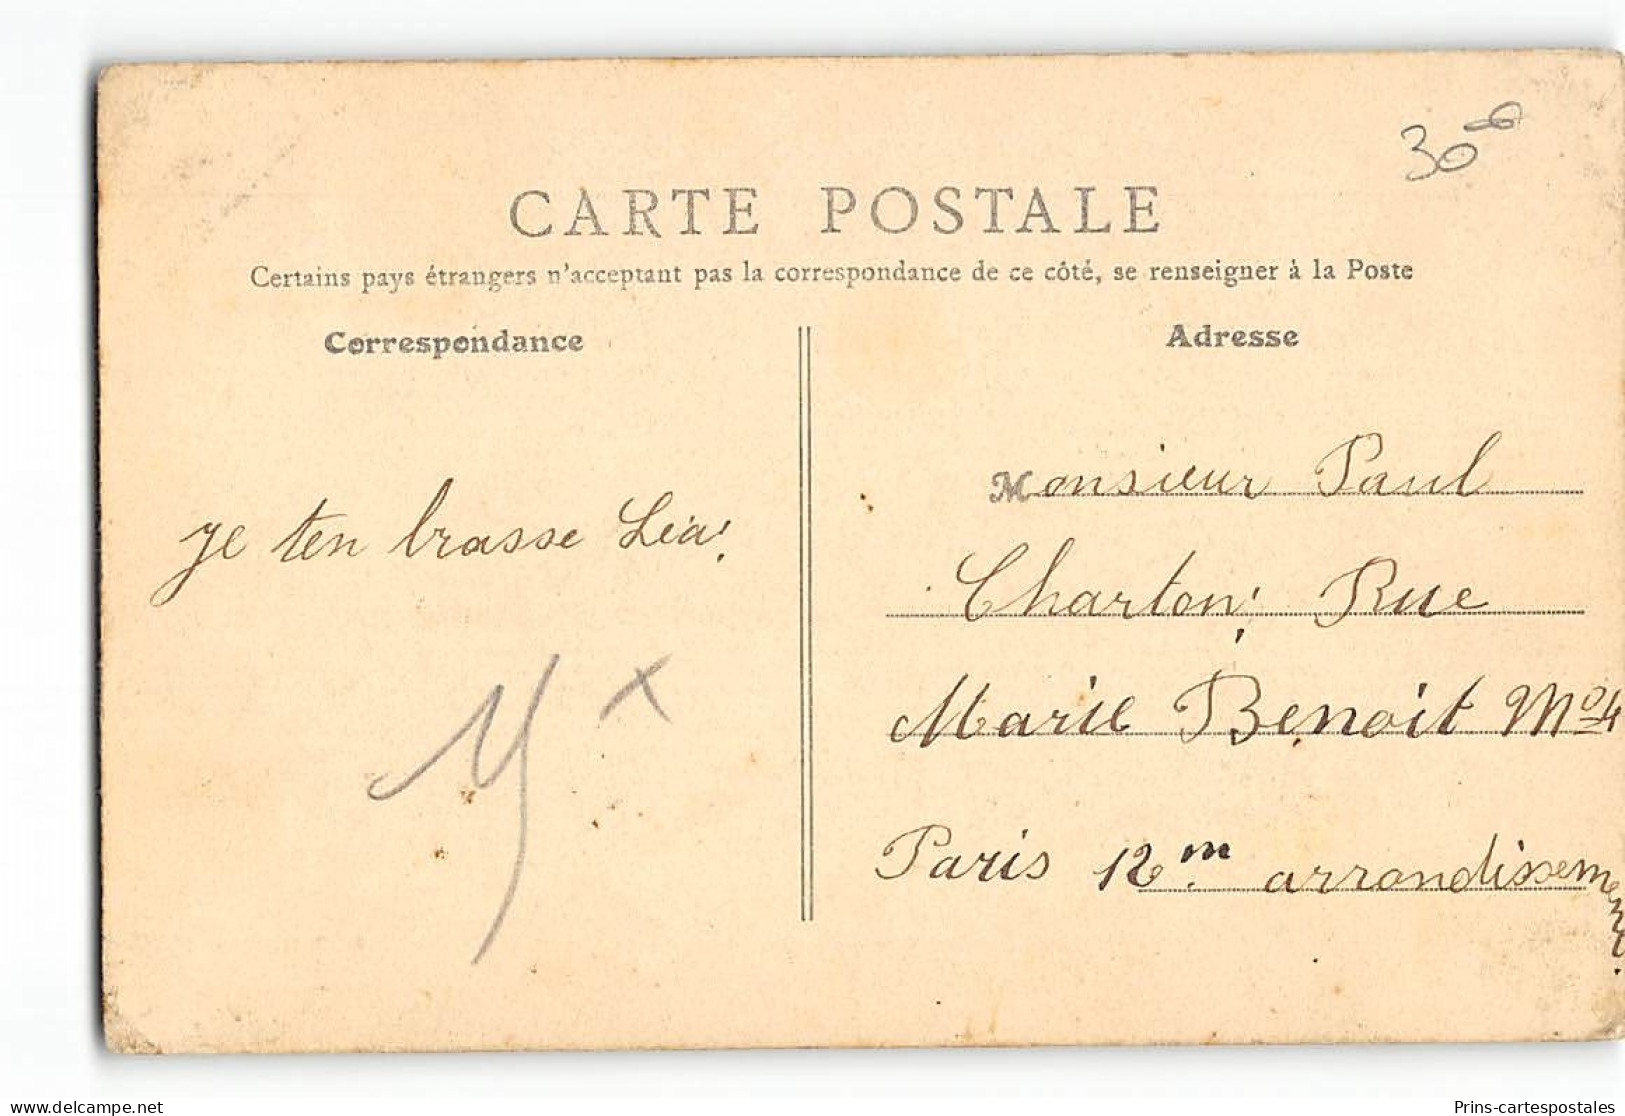 30 00
CARTE POSTALE
Certains pays étrangers n'acceptant pas la correspondance de ce côté, se renseigner à la Poste
Correspondance
Adresse
je ten brasse Léa.
Monsieur Paul
Charton, Rue
Marie Benoit No 4
Paris 12.m arrondissement.
delcampe.net
Prins-cartespostales